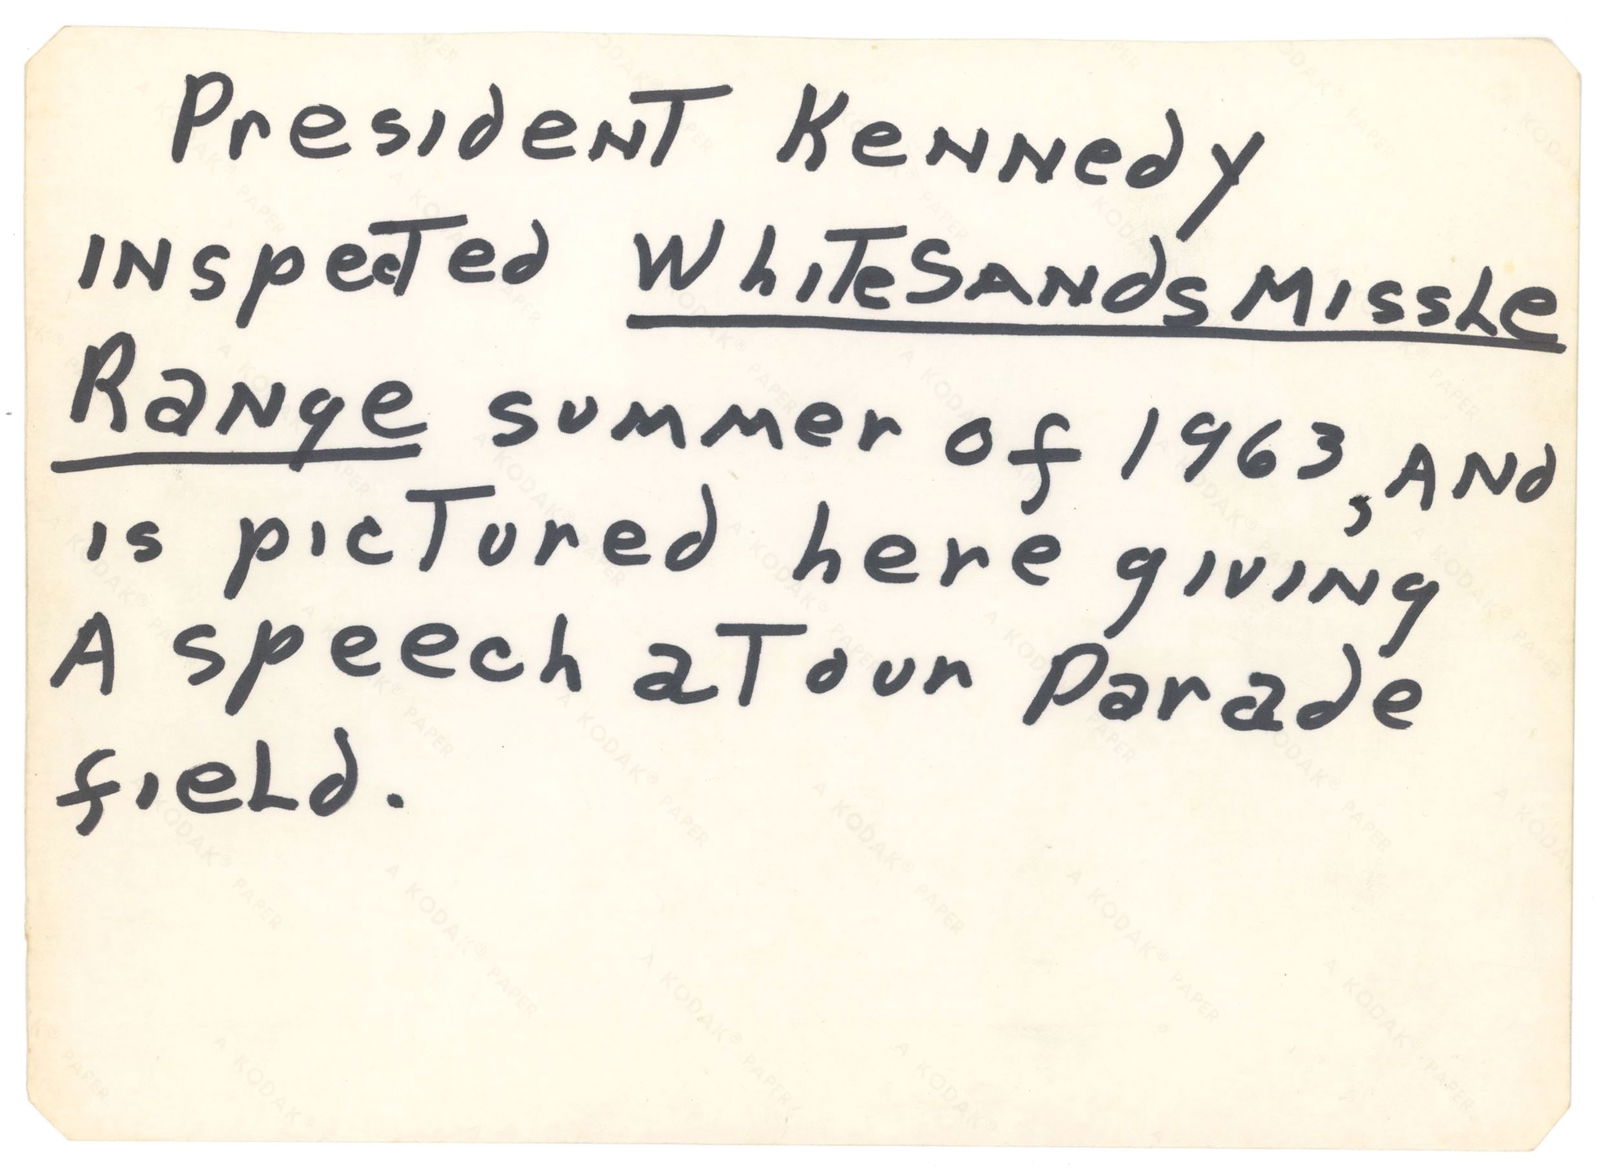 President Kennedy
inspected White Sands Missle
Range summer of 1963, and
is pictured here giving
A speech at our Parade
field.